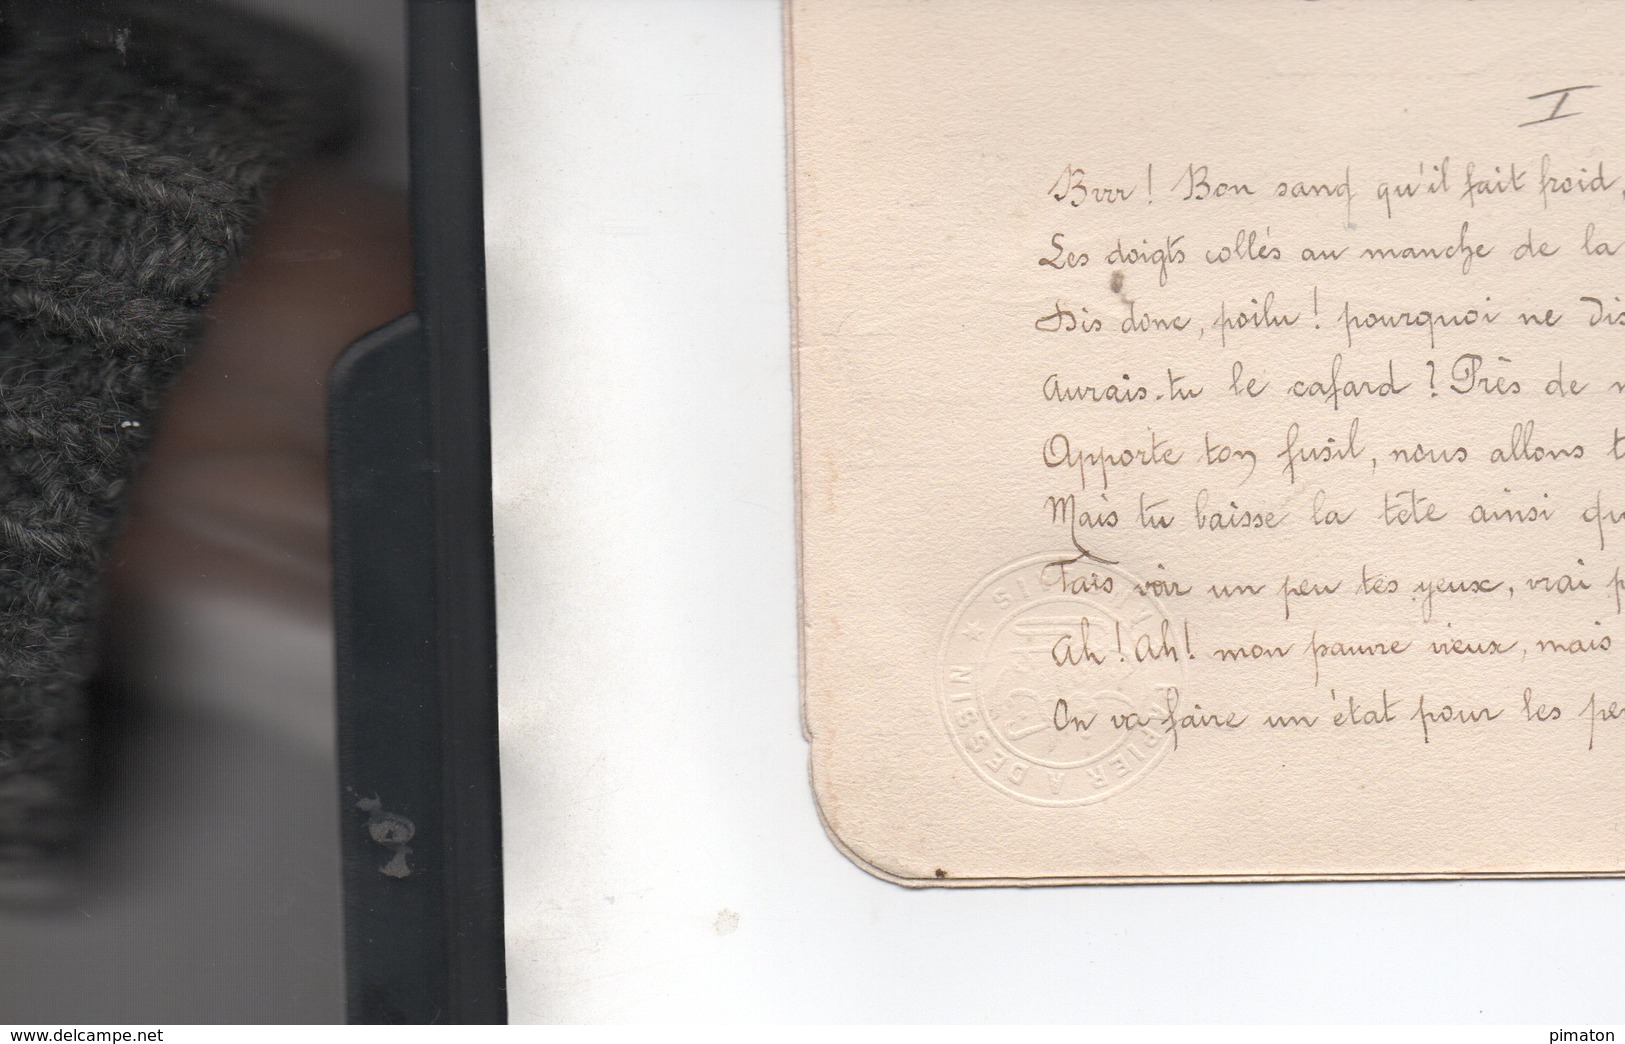 I
Brrr ! Bon sang qu'il fait froid,
Les doigts collés au manche de la
Dis donc, poilu ! pourquoi ne dis
Aurais-tu le cafard ? Près de
Apporte ton fusil, nous allons
Mais tu baisse la tête ainsi
Fais voir un peu tes yeux, vrai
Ah ! Ah ! mon pauvre vieux, mais
On va faire un état pour les
PAPIER A DESSIN
www.delcampe.net
pimaton